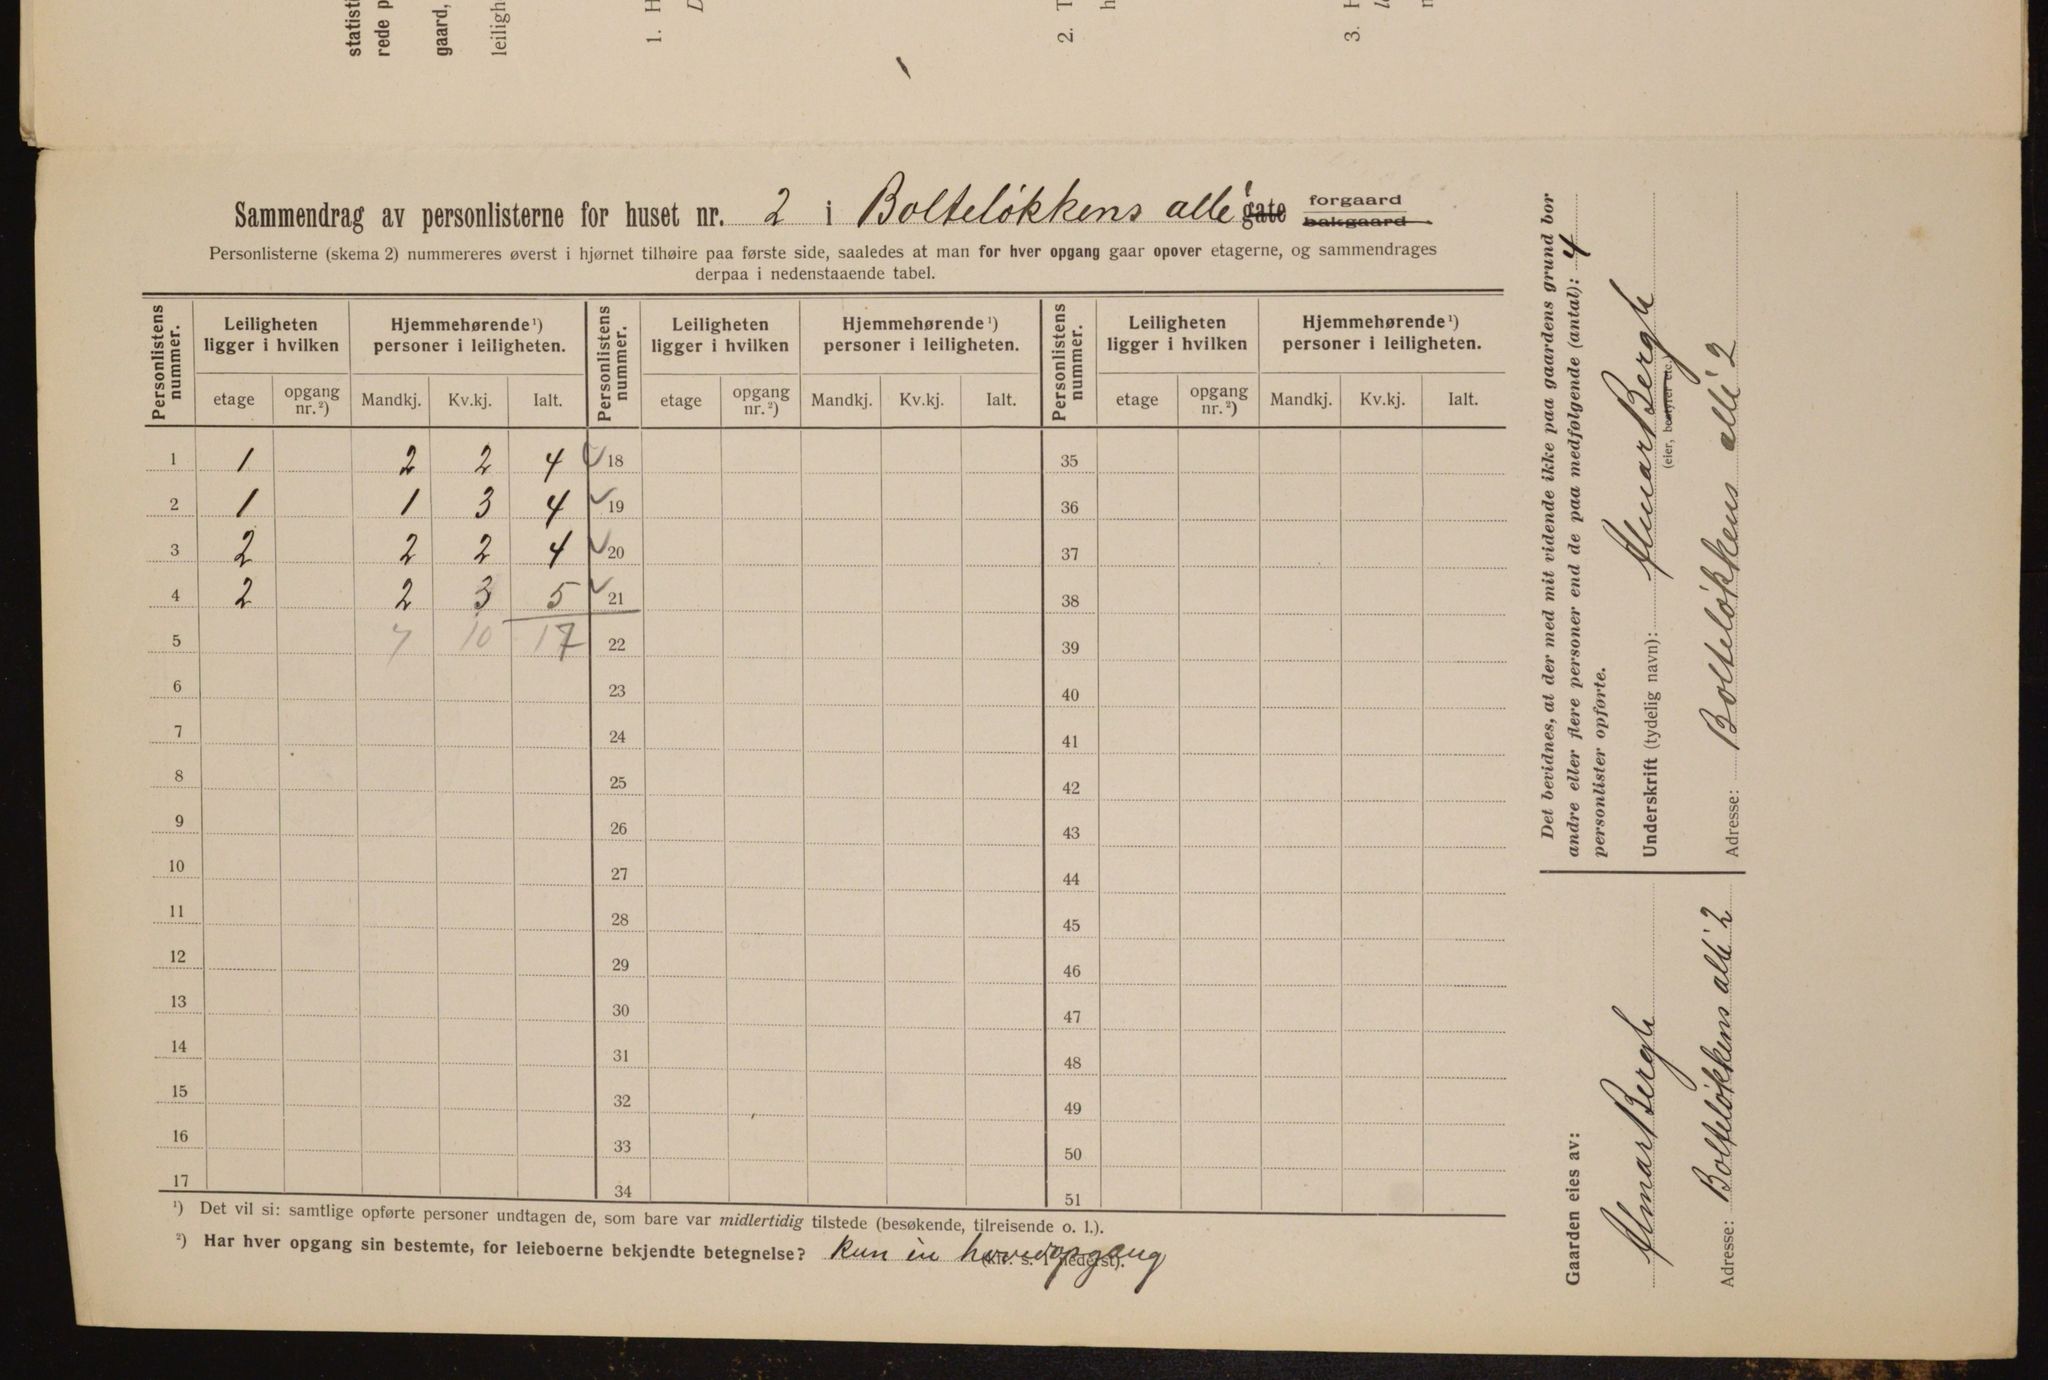 statisti
rede p
gaard,
leiligh
1. H
D
2. T
h
3. H
Sammendrag av personlisterne for huset nr. 2 i Bolteløkkens allé gate forgaard bakgaard
Personlisterne (skema 2) nummereres øverst i hjørnet tilhøire paa første side, saaledes at man for hver opgang gaar opover etagerne, og sammendrages
derpaa i nedenstaaende tabel.
Personlistens nummer. Leiligheten ligger i hvilken Hjemmehørende ¹) personer i leiligheten. Personlistens nummer. Leiligheten ligger i hvilken Hjemmehørende ¹) personer i leiligheten. Personlistens nummer. Leiligheten ligger i hvilken Hjemmehørende ¹) personer i leiligheten.
etage opgang nr. ²) Mandkj. Kv.kj. Ialt. etage opgang nr. ²) Mandkj. Kv.kj. Ialt. etage opgang nr. ²) Mandkj. Kv.kj. Ialt.
1 1 2 2 4 18 35
2 1 1 3 4 19 36
3 2 2 2 4 20 37
4 2 2 3 5 21 38
5 7 10 17 22 39
6 23 40
7 24 41
8 25 42
9 26 43
10 27 44
11 28 45
12 29 46
13 30 47
14 31 48
15 32 49
16 33 50
17 34 51
¹) Det vil si: samtlige opførte personer undtagen de, som bare var midlertidig tilstede (besøkende, tilreisende o. l.).
²) Har hver opgang sin bestemte, for leieboerne bekjendte betegnelse? kun én hovedopgang
(kfr. s. 1 nederst).
Det bevidnes, at der med mit vidende ikke paa gaardens grund bor
andre eller flere personer end de paa medfølgende (antal): 4
personlister opførte.
Underskrift (tydelig navn): Almar Bergh
(eier, bestyrer etc.)
Adresse: Bolteløkkens allé 2
Gaarden eies av:
Almar Bergh
Adresse: Bolteløkkens allé 2